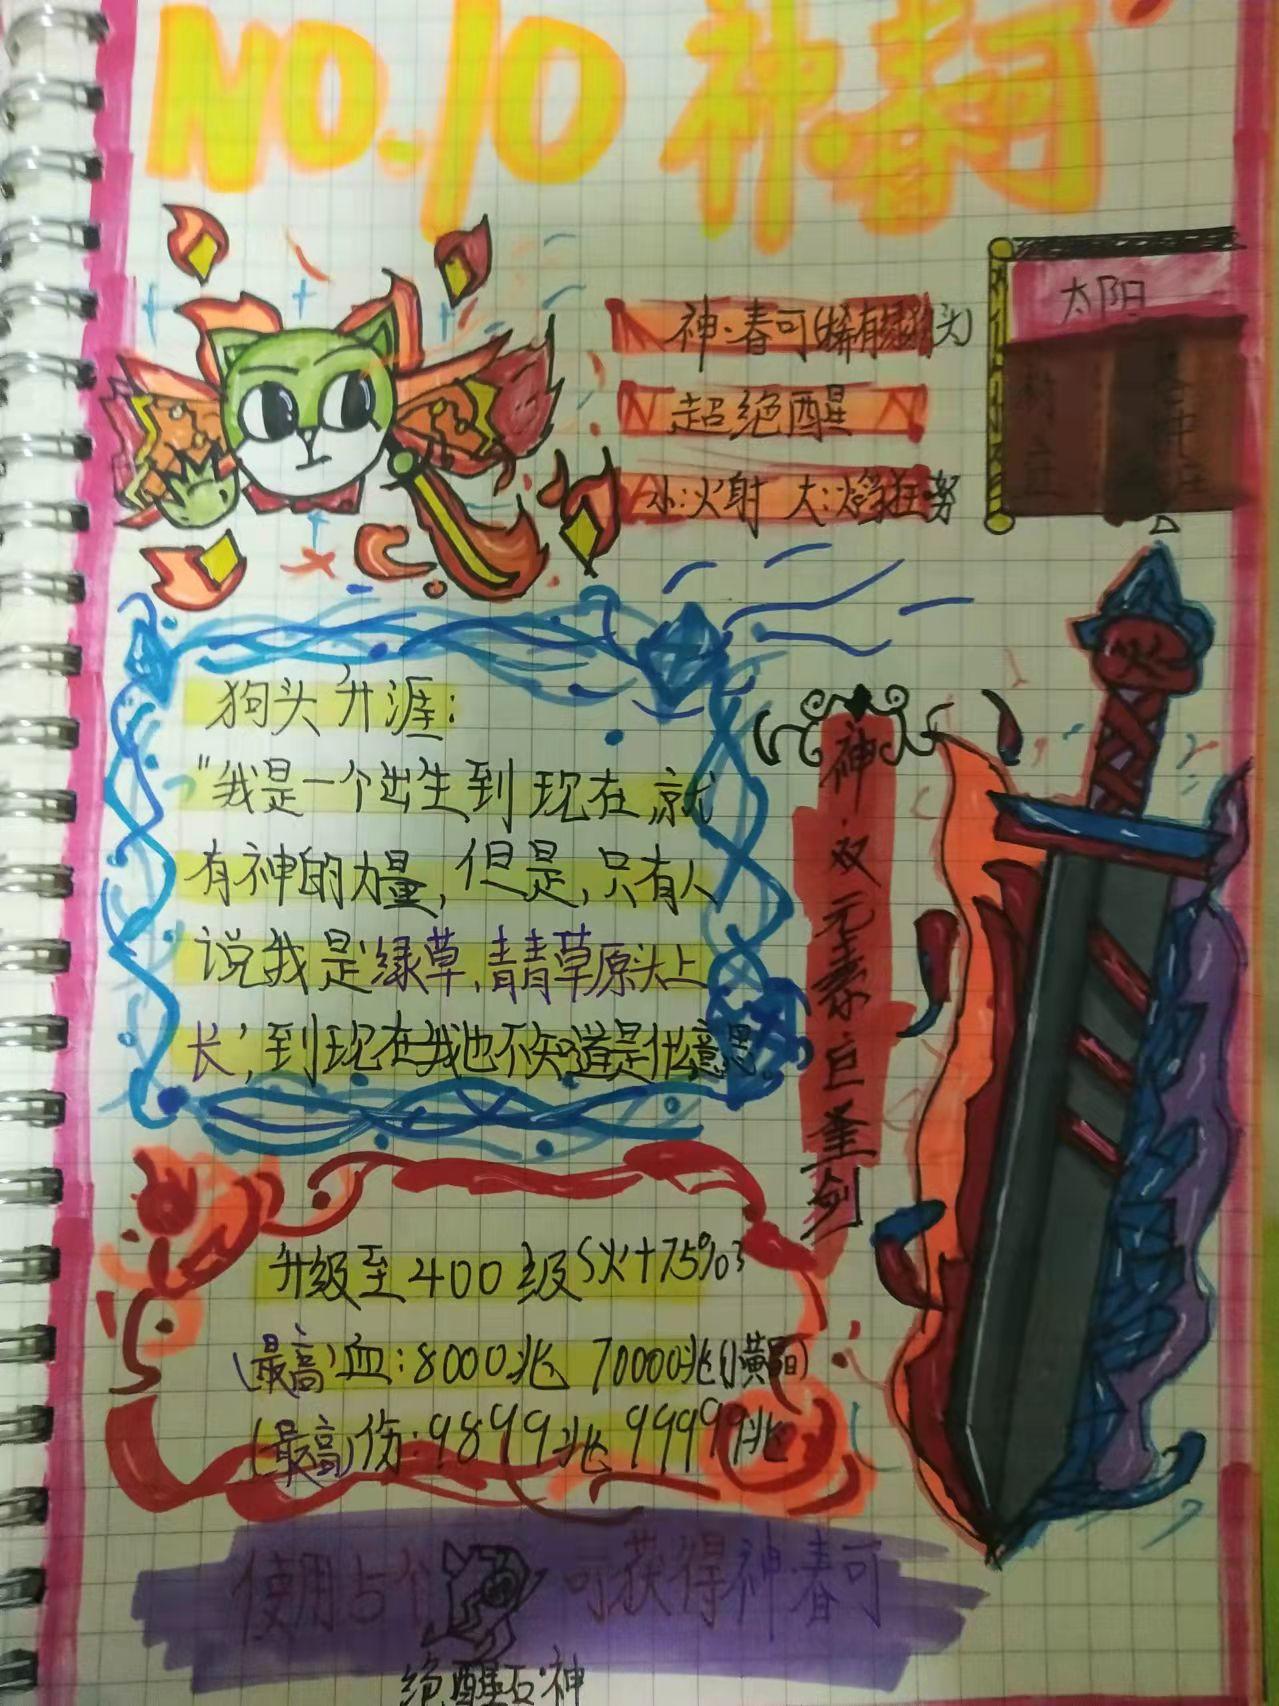 NO.10 神·春可
神·春可(稀有狗头)
超绝醒
小:火射 大:火焰狂努
太阳
狗头升涯:
"我是一个出生到现在,就
有神的力量,但是,只有人
说我是'绿草,青青草原头上
长',到现在我也不知道是什么意思.
神·双元素巨圣剑
升级至400级 火+75%
(最高)血:8000兆 70000兆
(最高)伤:9899兆 99999兆
使用5个 可获得神春可
绝醒石·神